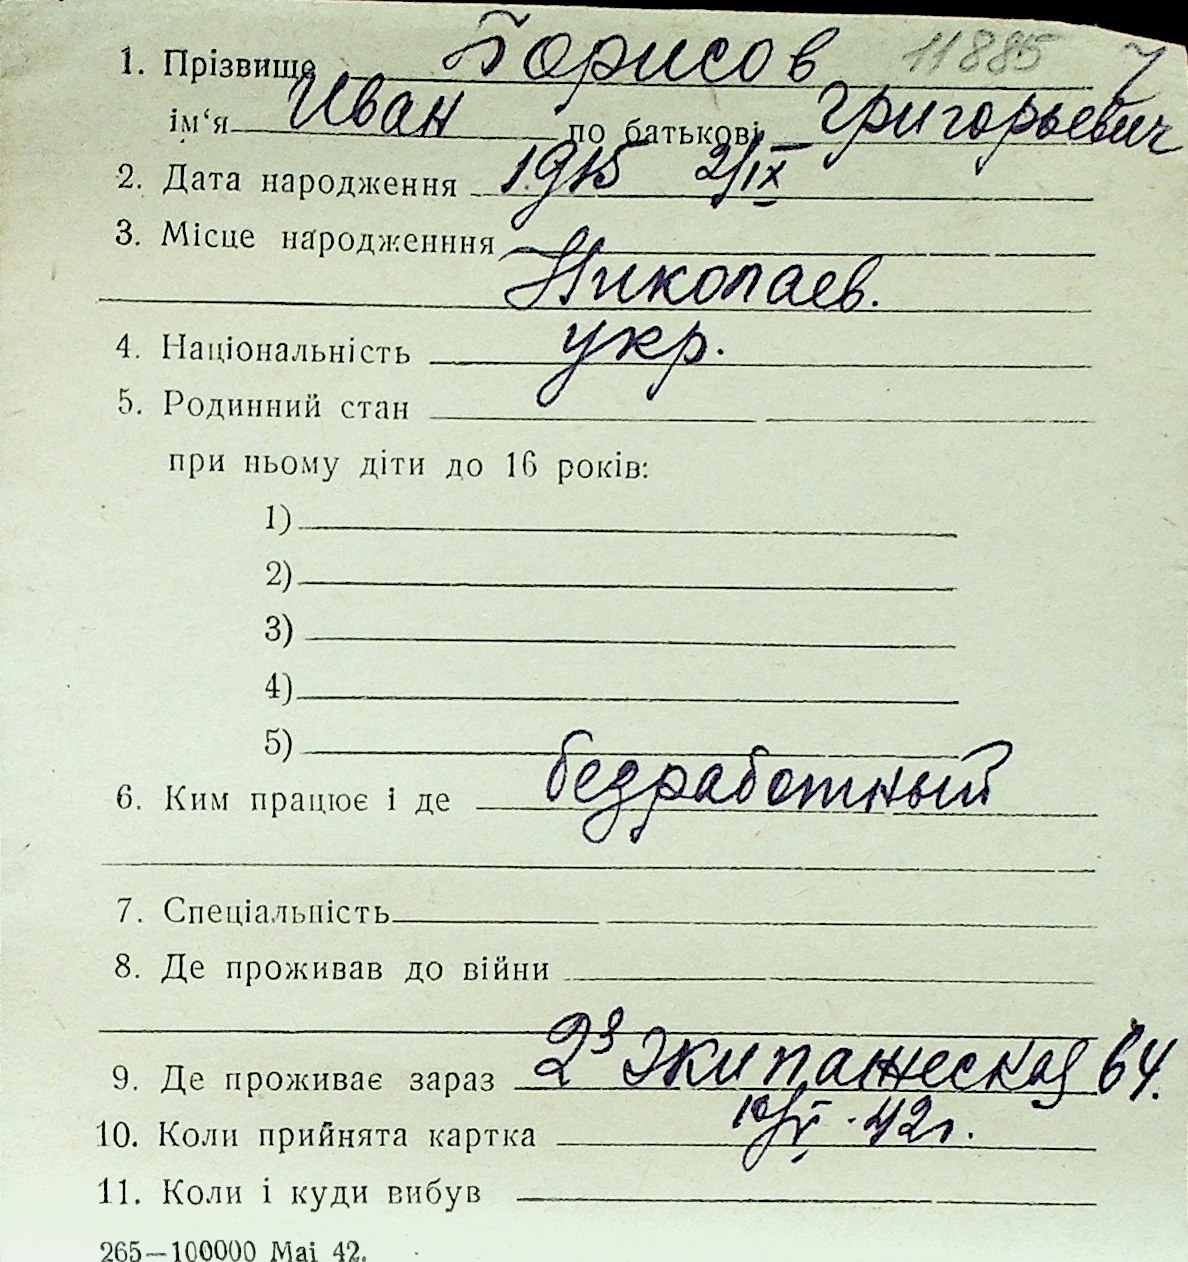 1. Прізвище Борисов 11885
ім‘я Иван по батькові Григорьевич
2. Дата народження 1915 2/IX
3. Місце народженння
Николаев.
4. Національність укр.
5. Родинний стан
при ньому діти до 16 років:
1)
2)
3)
4)
5)
6. Ким працює і де безработный
7. Спеціальність
8. Де проживав до війни
9. Де проживає зараз 2я Экипажеская 64.
10. Коли прийнята картка 10/V. 42г.
11. Коли і куди вибув
265—100000 Mai 42.